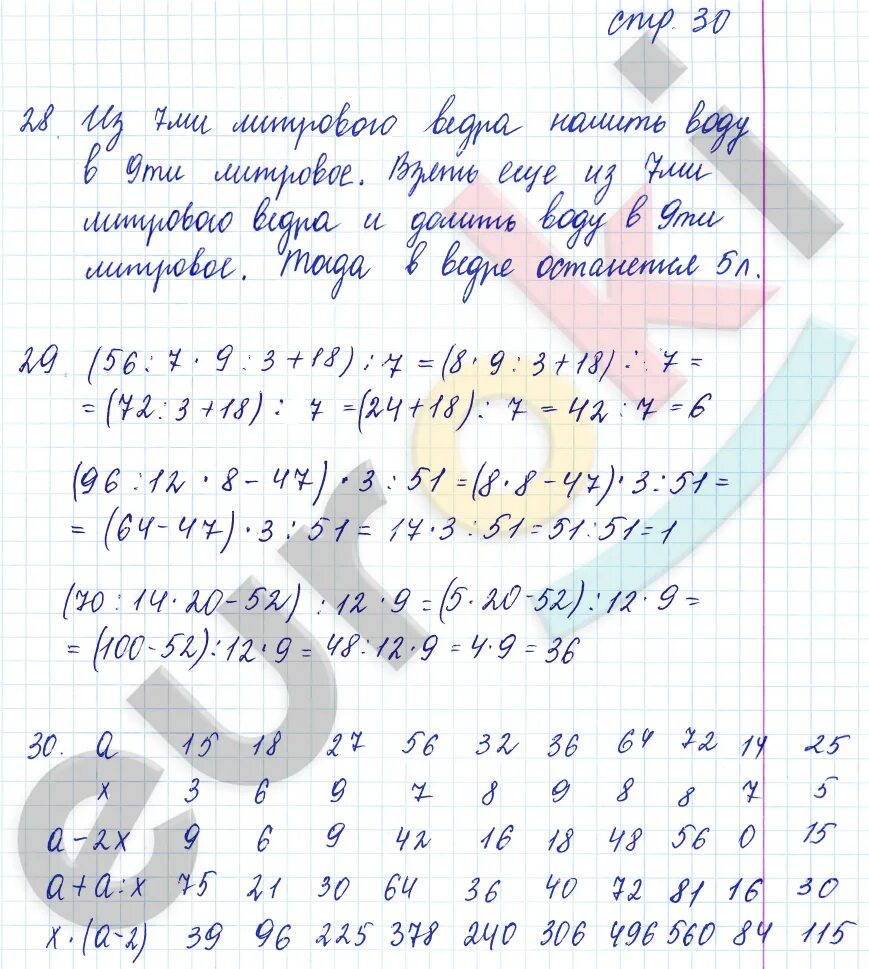 стр. 30
28. Из 7ми литрового ведра налить воду
в 9ти литровое. Взять еще из 7ми
литрового ведра и долить воду в 9ти
литровое. Тогда в ведре останется 5л.
29. (56 : 7 · 9 : 3 + 18) : 7 = (8 · 9 : 3 + 18) : 7 =
= (72 : 3 + 18) : 7 = (24 + 18) : 7 = 42 : 7 = 6
(96 : 12 · 8 - 47) · 3 : 51 = (8 · 8 - 47) · 3 : 51 =
= (64 - 47) · 3 : 51 = 17 · 3 : 51 = 51 : 51 = 1
(70 : 14 · 20 - 52) : 12 · 9 = (5 · 20 - 52) : 12 · 9 =
= (100 - 52) : 12 · 9 = 48 : 12 · 9 = 4 · 9 = 36
30. a 15 18 27 56 32 36 64 72 14 25
x 3 6 9 7 8 9 8 8 7 5
a - 2x 9 6 9 42 16 18 48 56 0 15
a + a : x 75 21 30 64 36 40 72 81 16 30
x · (a - 2) 39 96 225 378 240 306 496 560 84 115
euroki